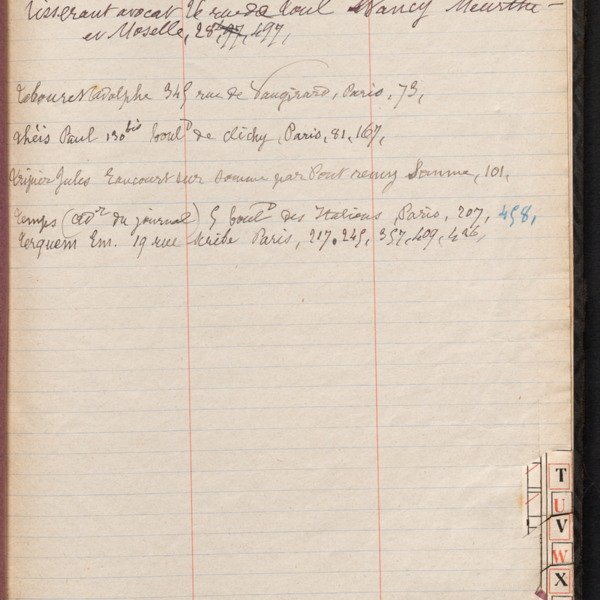 Tisserant avocat 26 rue de Toul Nancy Meurthe-
et Moselle, 28, 97, 497,
Adolphe 345 rue de Vaugirard, Paris, 73,
Théis Paul 130bis boulD de clichy, Paris, 81, 167,
Jules sur somme par Pont remy Somme, 101,
Temps (adon du journal) 5 boulD des Italiens, Paris, 207, 458,
Terquem Em. 19 rue Scribe Paris, 217, 245, 357, 409, 426,
T
U
V
W
X